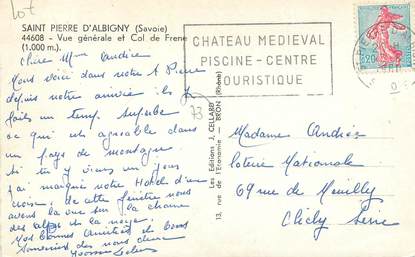 107
SAINT PIERRE D'ALBIGNY (Savoie)
44608 - Vue générale et Col de Frene
(1.000 m).
Chère Mme Andrée
Nous voici dans notre St Pierre
depuis notre arrivée il
fait un temps superbe
ce qui est agréable dans
un pays de montagne.
Si tu y viens un jour
j'ai marqué notre Hotel d'une
croix, de cette fenêtre nous
avons la vue sur la chaine
des alpes de la neige.
Nos bonnes Amitiés et bons
Souvenirs de nous deux
Yvonne
73
13, rue de l'Economie - BRON (Rhône)
Les Editions J. CELLARD
CHATEAU MEDIEVAL
PISCINE - CENTRE
TOURISTIQUE
0,20
Madame Andrée
Loterie Nationale
69 rue de Neuilly
Clichy Seine